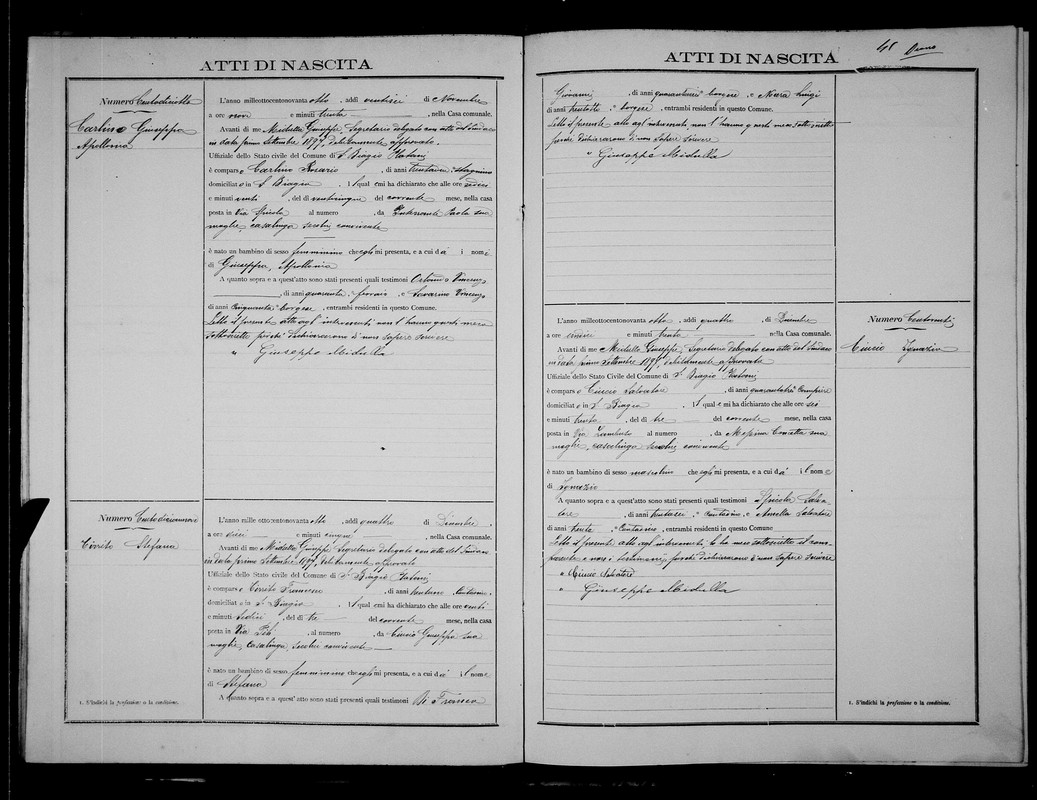 ATTI DI NASCITA
Numero Centodiciotto
Carlino Giuseppa
Apollonia
L'anno milleottocentonovantaotto, addì ventisei di Novembre
a ore nove e minuti trenta, nella Casa comunale.
Avanti di me Midulla Giuseppe, Segretario delegato con atto del Sindaco
in data primo Settembre 1897, debitamente approvato,
Uffiziale dello Stato Civile del Comune di S. Biagio Platani
è comparso Carlino Rosario, di anni trentatre, Stagnino
domiciliato in S. Biagio, il qual e mi ha dichiarato che alle ore sedici
e minuti venti, del dì venticinque del corrente mese, nella casa
posta in Via Spicola al numero, da Inderrante Paola sua
moglie, casalinga seco lui convivente
è nato un bambino di sesso femminino che egli mi presenta, e a cui dà i nomi
di Giuseppa, Apollonia
A quanto sopra e a quest'atto sono stati presenti quali testimoni Orlando Vincenzo
, di anni quaranta, ferraio, e Savarino Vincenzo
di anni cinquanta, borgese, entrambi residenti in questo Comune.
Letto il presente atto agl'intervenuti non l'hanno questi meco
sottoscritto perchè dichiararono di non sapere scrivere
Giuseppe Midulla
Numero Centodiciannove
Cirrito Stefana
L'anno mille ottocentonovantaotto, addì quattro di Dicembre,
a ore dieci e minuti cinque, nella Casa comunale.
Avanti di me Midulla Giuseppe, Segretario delegato con atto del Sindaco
in data primo Settembre 1897, debitamente approvato
Uffiziale dello Stato Civile del Comune di S. Biagio Platani
è comparso Cirrito Francesco, di anni trentuno, Contadino,
domiciliato in S. Biagio, il qual e mi ha dichiarato che alle ore venti
e minuti sedici, del dì tre del corrente mese, nella casa
posta in Via Pili, al numero, da Ciuccio Giuseppa sua
moglie, casalinga, seco lui convivente
è nato un bambino di sesso femminino che egli mi presenta, e a cui dà il nome
di Stefana
A quanto sopra e a quest'atto sono stati presenti quali testimoni Di Franco
1. S'indichi la professione o la condizione.
ATTI DI NASCITA
48
Giovanni, di anni quarantasei, borgese, e Mura Luigi
di anni trentotto, borgese, entrambi residenti in questo Comune.
Letto il presente atto agl'intervenuti non l'hanno questi meco sottoscritto
perchè dichiararono di non sapere scrivere
Giuseppe Midulla
Numero Centoventi
Ciuccio Ignazio
L'anno milleottocentonovantaotto, addì quattro, di Dicembre
a ore undici e minuti trenta nella Casa comunale.
Avanti di me Midulla Giuseppe, Segretario delegato con atto del Sindaco
in data primo Settembre 1897, debitamente approvato
Uffiziale dello Stato Civile del Comune di S. Biagio Platani
è comparso Ciuccio Salvatore, di anni quarantatre Campiere
domiciliato in S. Biagio. Il qual e mi ha dichiarato che alle ore sei
e minuti trenta, del dì tre del corrente mese, nella casa
posta in Via Zambuto al numero, da Messina Concetta sua
moglie, casalinga seco lui convivente
è nato un bambino di sesso mascolino che egli mi presenta, e a cui dà il nome
di Ignazio
A quanto sopra e a quest'atto sono stati presenti quali testimoni Spicola Salva
tore, di anni trentasei, Contadino, e Amella Salvatore
di anni trenta, Contadino, entrambi residenti in questo Comune
Letto il presente atto agl'intervenuti, lo ha meco sottoscritto il com
parente e non i testimoni perchè dichiararono di non sapere scrivere
Ciuccio Salvatore
Giuseppe Midulla
1. S'indichi la professione o la condizione.